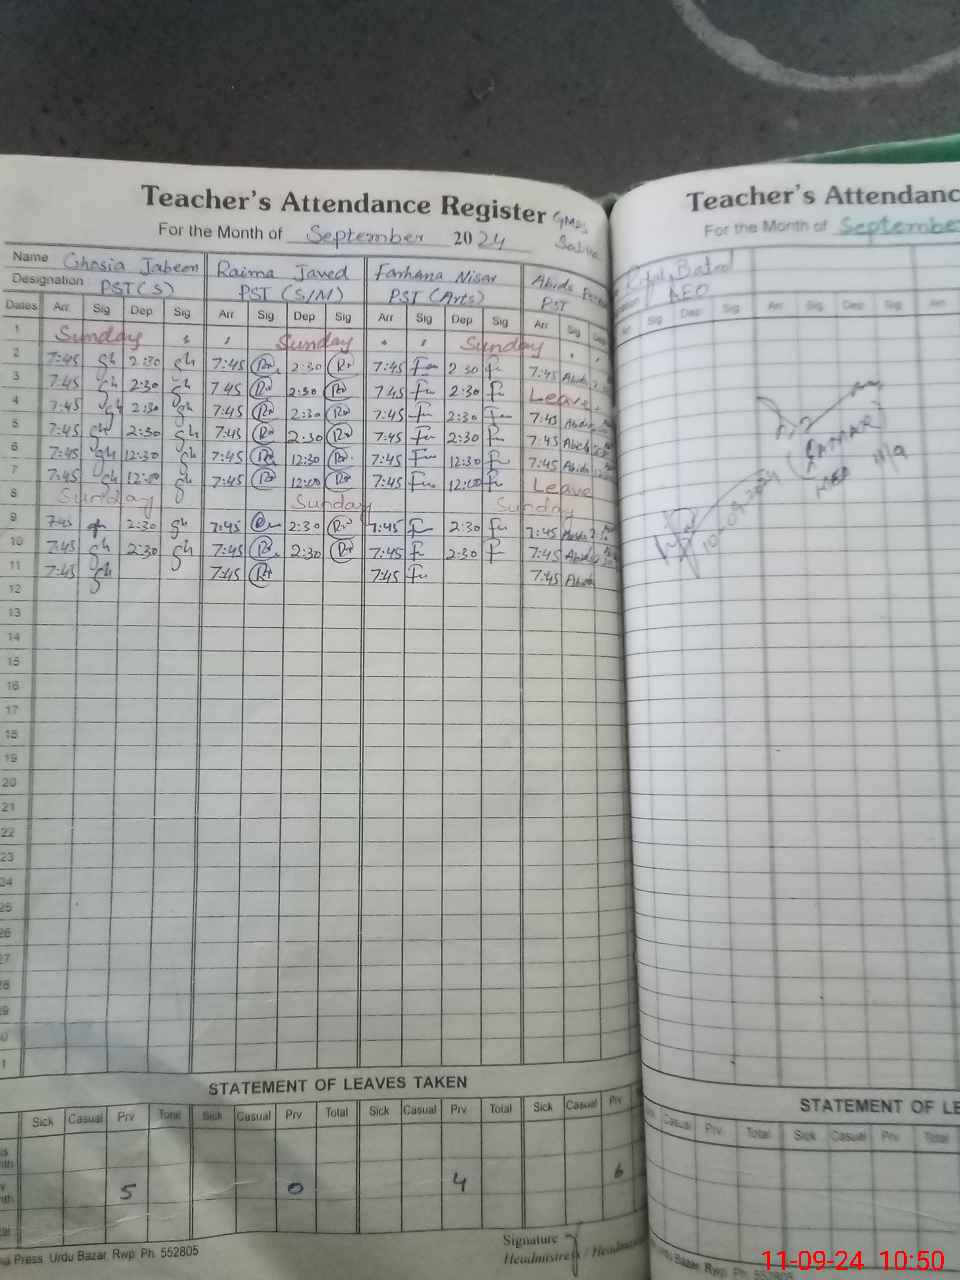 Teacher's Attendance Register
For the Month of September 2024
Name Ghosia Jabeen Raima Javed Farhana Nisar Abida
Designation PST(S) PST (S/M) PST (Arts) PST
Dates Arr Sig Dep Sig Arr Sig Dep Sig Arr Sig Dep Sig Arr Sig
1 Sunday Sunday Sunday
2 7:45 Gh 2:30 Gh 7:45 2:30 7:45 2:30 7:45 Abida
3 7:45 Gh 2:30 Gh 7:45 2:30 7:45 2:30 Leave
4 7:45 Gh 2:30 Gh 7:45 2:30 7:45 2:30 7:45 Abida
5 7:45 Gh 2:30 Gh 7:45 2:30 7:45 2:30 7:45 Abida
6 7:45 Gh 12:30 Gh 7:45 12:30 7:45 12:30 7:45 Abida
7 7:45 Gh 12:00 7:45 12:00 7:45 12:00 Leave
8 Sunday Sunday Sunday
9 7:45 2:30 Gh 7:45 2:30 7:45 2:30 7:45 Abida
10 7:45 Gh 2:30 Gh 7:45 2:30 7:45 2:30 7:45 Abida
11 7:45 Gh 7:45 7:45 7:45 Abida
12
13
14
15
16
17
18
19
20
21
22
23
24
25
26
27
28
STATEMENT OF LEAVES TAKEN
Sick Casual Prv Total Sick Casual Prv Total Sick Casual Prv Total Sick Casual Prv
5 0 4 6
Press Urdu Bazar Rwp Ph. 552805
Signature
Headmistress / Headmaster
Teacher's Attendanc
For the Month of September
Batool
AEO
Sig Dep Sig Arr Sig Dep Sig Arr
QAMAR
11/9
10-09-2024
STATEMENT OF LE
Casual Prv Total Sick Casual Prv Total
Bazar, Rwp Ph. 552805
11-09-24 10:50